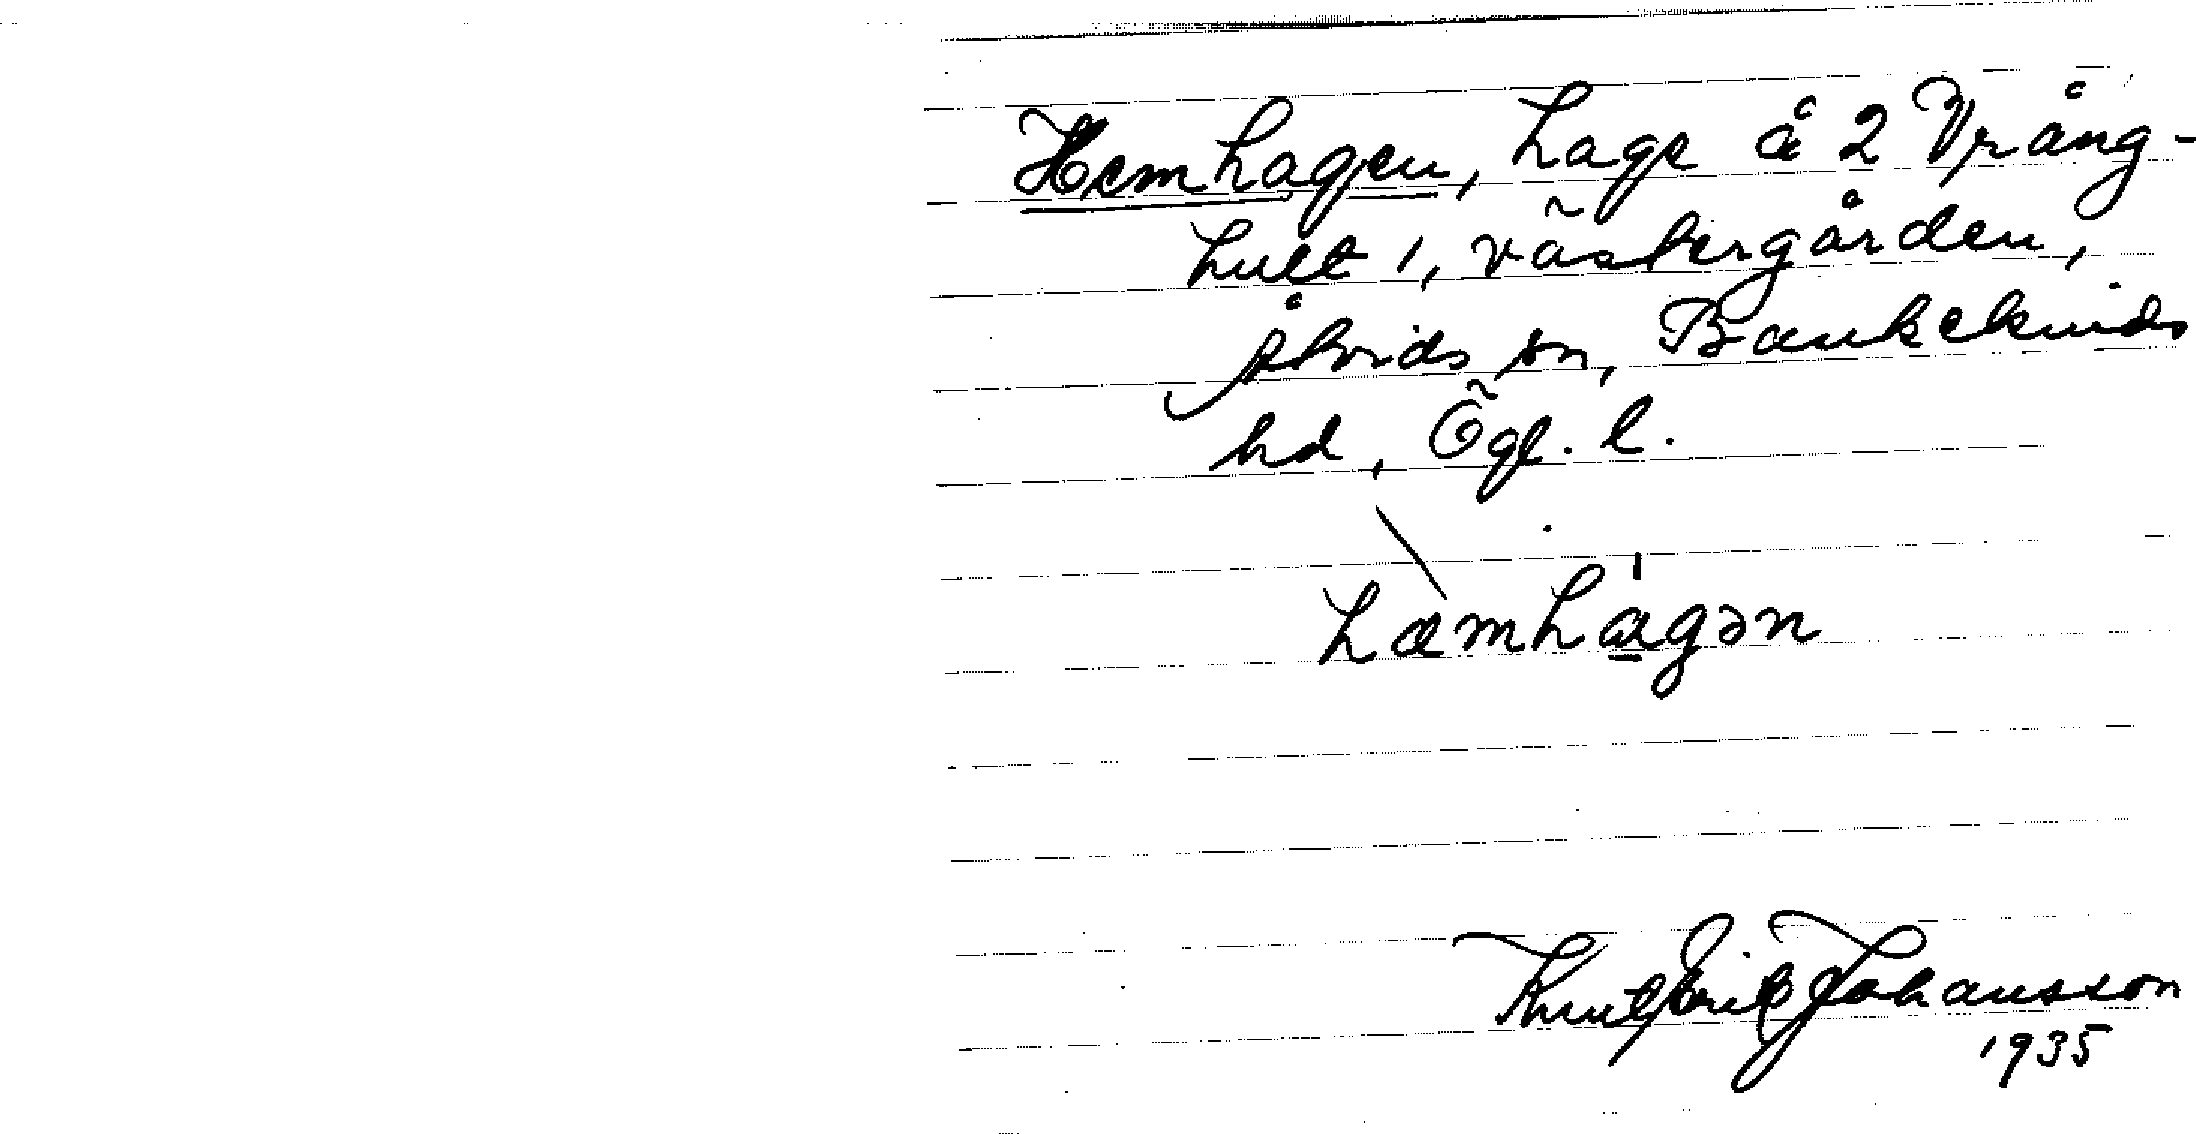 Hemhagen, hage å 2 Vrång-
hult 1, västergården,
Åtvids sn, Bankekinds
hd, Ögl. l.
\hæmhàgən
Knut Erik Johansson
1935